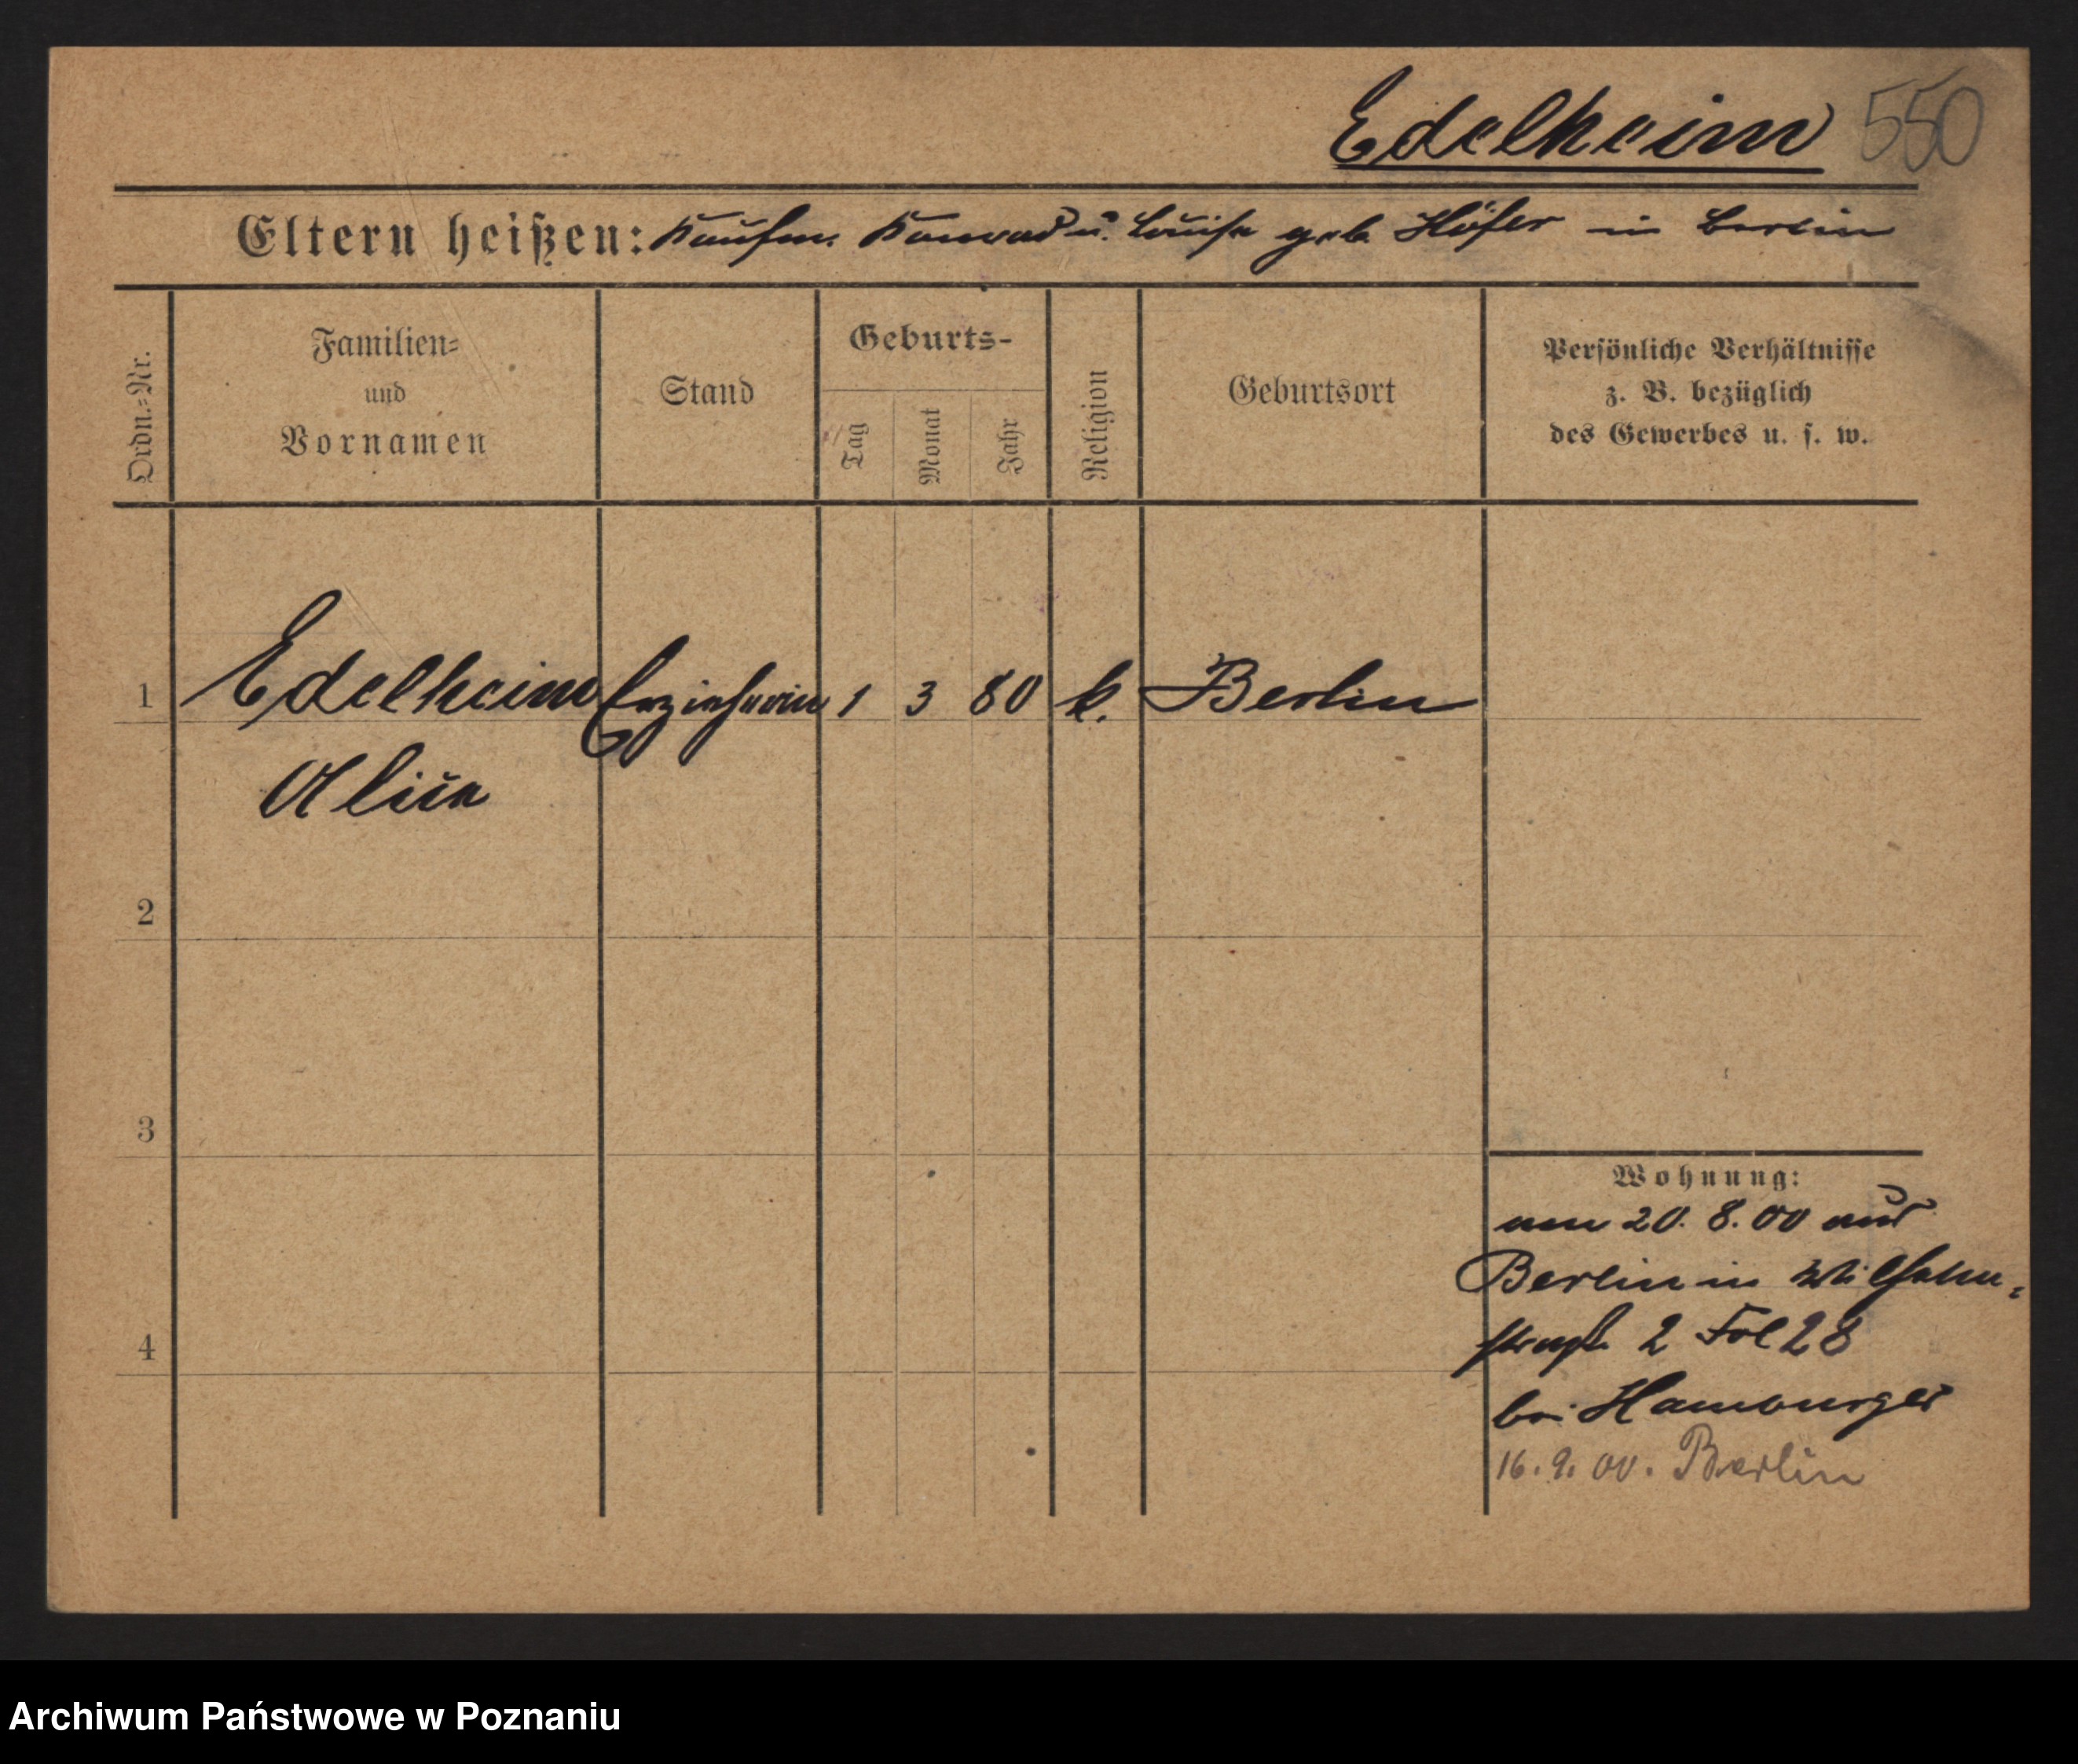 Edelheim 550
Eltern heißen: Kaufm. Konrad u. Louise geb. Höfer in Berlin
Ordn.=Nr.
Familien=
und
Vornamen
Stand
Geburts-
Tag
Monat
Jahr
Religion
Geburtsort
Persönliche Verhältnisse
z. B. bezüglich
des Gewerbes u. s. w.
1 Edelheim Erzieherin 1 3 80 k. Berlin
2
3
4
Wohnung:
am 20. 8. 00 aus
Berlin in Wilhelm=
straße 2 Fol 28
bei Hamburger
16. 9. 00. Berlin
Archiwum Państwowe w Poznaniu